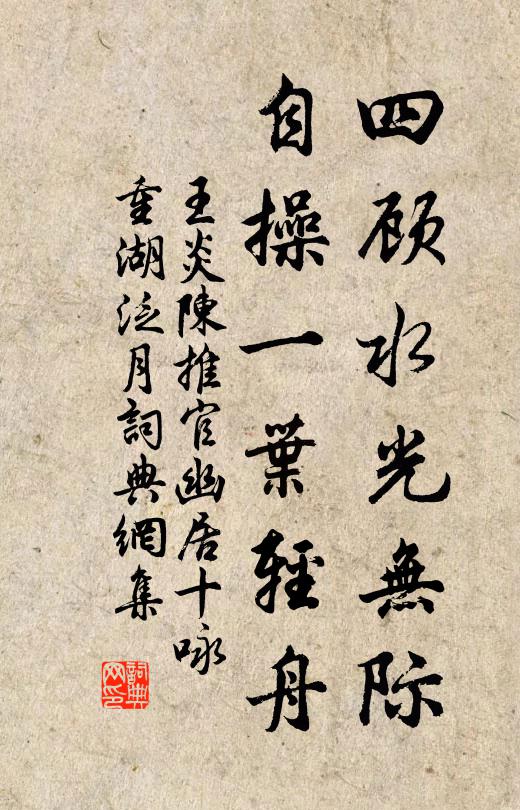 四顾水光無际
自操一葉輕舟
王炎陳推官幽居十咏
重湖泛月詞典網集
詞典網印